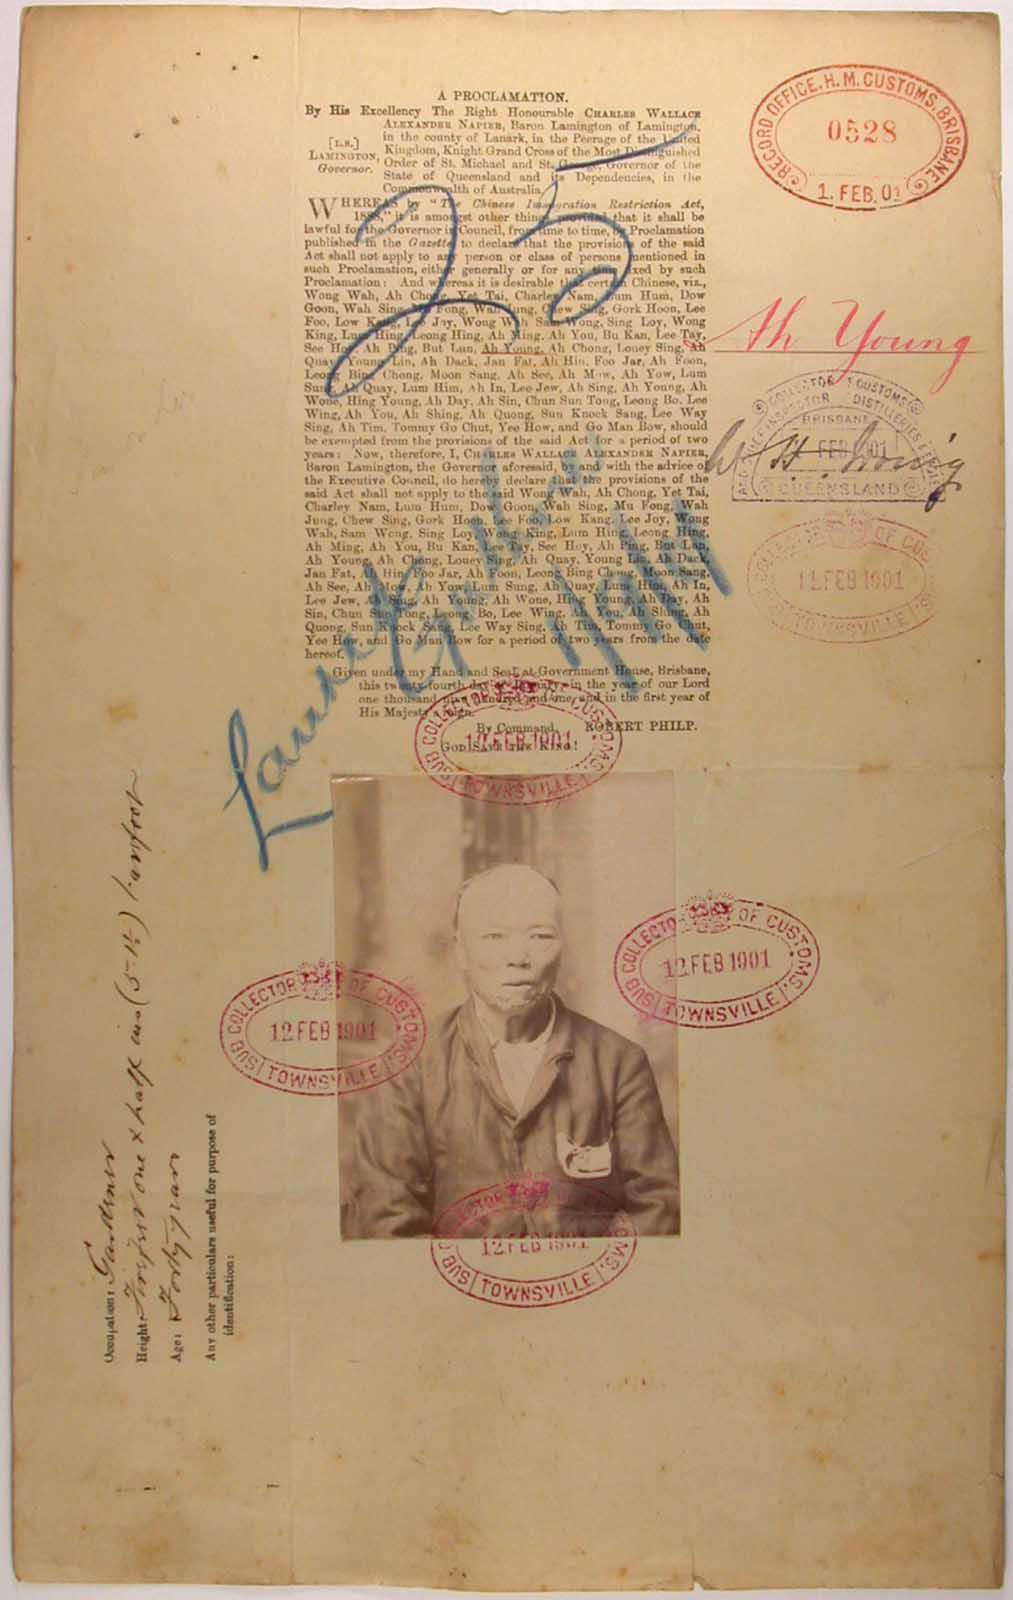 A PROCLAMATION.
By His Excellency The Right Honourable CHARLES WALLACE
ALEXANDER NAPIER, Baron Lamington of Lamington,
in the county of Lanark, in the Peerage of the United
Kingdom, Knight Grand Cross of the Most Distinguished
Order of St. Michael and St. George, Governor of the
State of Queensland and its Dependencies, in the
Commonwealth of Australia.
[L.S.]
LAMINGTON,
Governor.
WHEREAS by "The Chinese Immigration Restriction Act,
1888," it is amongst other things provided that it shall be
lawful for the Governor in Council, from time to time, by Proclamation
published in the Gazette to declare that the provisions of the said
Act shall not apply to any person or class of persons mentioned in
such Proclamation, either generally or for any time fixed by such
Proclamation: And whereas it is desirable that certain Chinese, viz.,
Wong Wah, Ah Chong, Yet Tai, Charley Nam, Lum Hum, Dow
Goon, Wah Sing, Mu Fong, Wah Jung, Chew Sing, Gork Hoon, Lee
Foo, Low Kang, Lee Joy, Wong Wah, Sam Wong, Sing Loy, Wong
King, Lum Hing, Leong Hing, Ah Ming, Ah You, Bu Kan, Lee Tay,
See Hoy, Ah Ping, But Lan, Ah Young, Ah Chong, Louey Sing, Ah
Quay, Young Lin, Ah Dack, Jan Fat, Ah Hin, Foo Jar, Ah Foon,
Leong Bing Chong, Moon Sang, Ah See, Ah Mow, Ah Yow, Lum
Sung, Ah Quay, Lum Him, Ah In, Lee Jew, Ah Sing, Ah Young, Ah
Wone, Hing Young, Ah Day, Ah Sin, Chun Sun Tong, Leong Bo, Lee
Wing, Ah You, Ah Shing, Ah Quong, Sun Knock Sang, Lee Way
Sing, Ah Tim, Tommy Go Chut, Yee How, and Go Man Bow, should
be exempted from the provisions of the said Act for a period of two
years: Now, therefore, I, CHARLES WALLACE ALEXANDER NAPIER,
Baron Lamington, the Governor aforesaid, by and with the advice of
the Executive Council, do hereby declare that the provisions of the
said Act shall not apply to the said Wong Wah, Ah Chong, Yet Tai,
Charley Nam, Lum Hum, Dow Goon, Wah Sing, Mu Fong, Wah
Jung, Chew Sing, Gork Hoon, Lee Foo, Low Kang, Lee Joy, Wong
Wah, Sam Wong, Sing Loy, Wong King, Lum Hing, Leong Hing,
Ah Ming, Ah You, Bu Kan, Lee Tay, See Hoy, Ah Ping, But Lan,
Ah Young, Ah Chong, Louey Sing, Ah Quay, Young Lin, Ah Dack,
Jan Fat, Ah Hin, Foo Jar, Ah Foon, Leong Bing Chong, Moon Sang,
Ah See, Ah Mow, Ah Yow, Lum Sung, Ah Quay, Lum Him, Ah In,
Lee Jew, Ah Sing, Ah Young, Ah Wone, Hing Young, Ah Day, Ah
Sin, Chun Sun Tong, Leong Bo, Lee Wing, Ah You, Ah Shing, Ah
Quong, Sun Knock Sang, Lee Way Sing, Ah Tim, Tommy Go Chut,
Yee How, and Go Man Bow for a period of two years from the date
hereof.
Given under my Hand and Seal at Government House, Brisbane,
this twenty-fourth day of January, in the year of our Lord
one thousand nine hundred and one, and in the first year of
His Majesty's reign.
By Command, ROBERT PHILP.
GOD SAVE THE KING!
25
RECORD OFFICE, H. M. CUSTOMS, BRISBANE
0528
1. FEB. 01
Ah Young
COLLECTOR OF CUSTOMS
DISTILLERIES
BRISBANE
FEB 1901
QUEENSLAND
W. H. Irving
SUB COLLECTOR OF CUSTOMS.
12 FEB 1901
TOWNSVILLE
SUB COLLECTOR OF CUSTOMS.
12 FEB 1901
TOWNSVILLE
SUB COLLECTOR OF CUSTOMS.
12 FEB 1901
TOWNSVILLE
SUB COLLECTOR OF CUSTOMS.
12 FEB 1901
TOWNSVILLE
SUB COLLECTOR OF CUSTOMS.
12 FEB 1901
TOWNSVILLE
Occupation: Gardener
Height: one & half ins (5-1½) barefoot
Age: Forty years
Any other particulars useful for purpose of
identification: